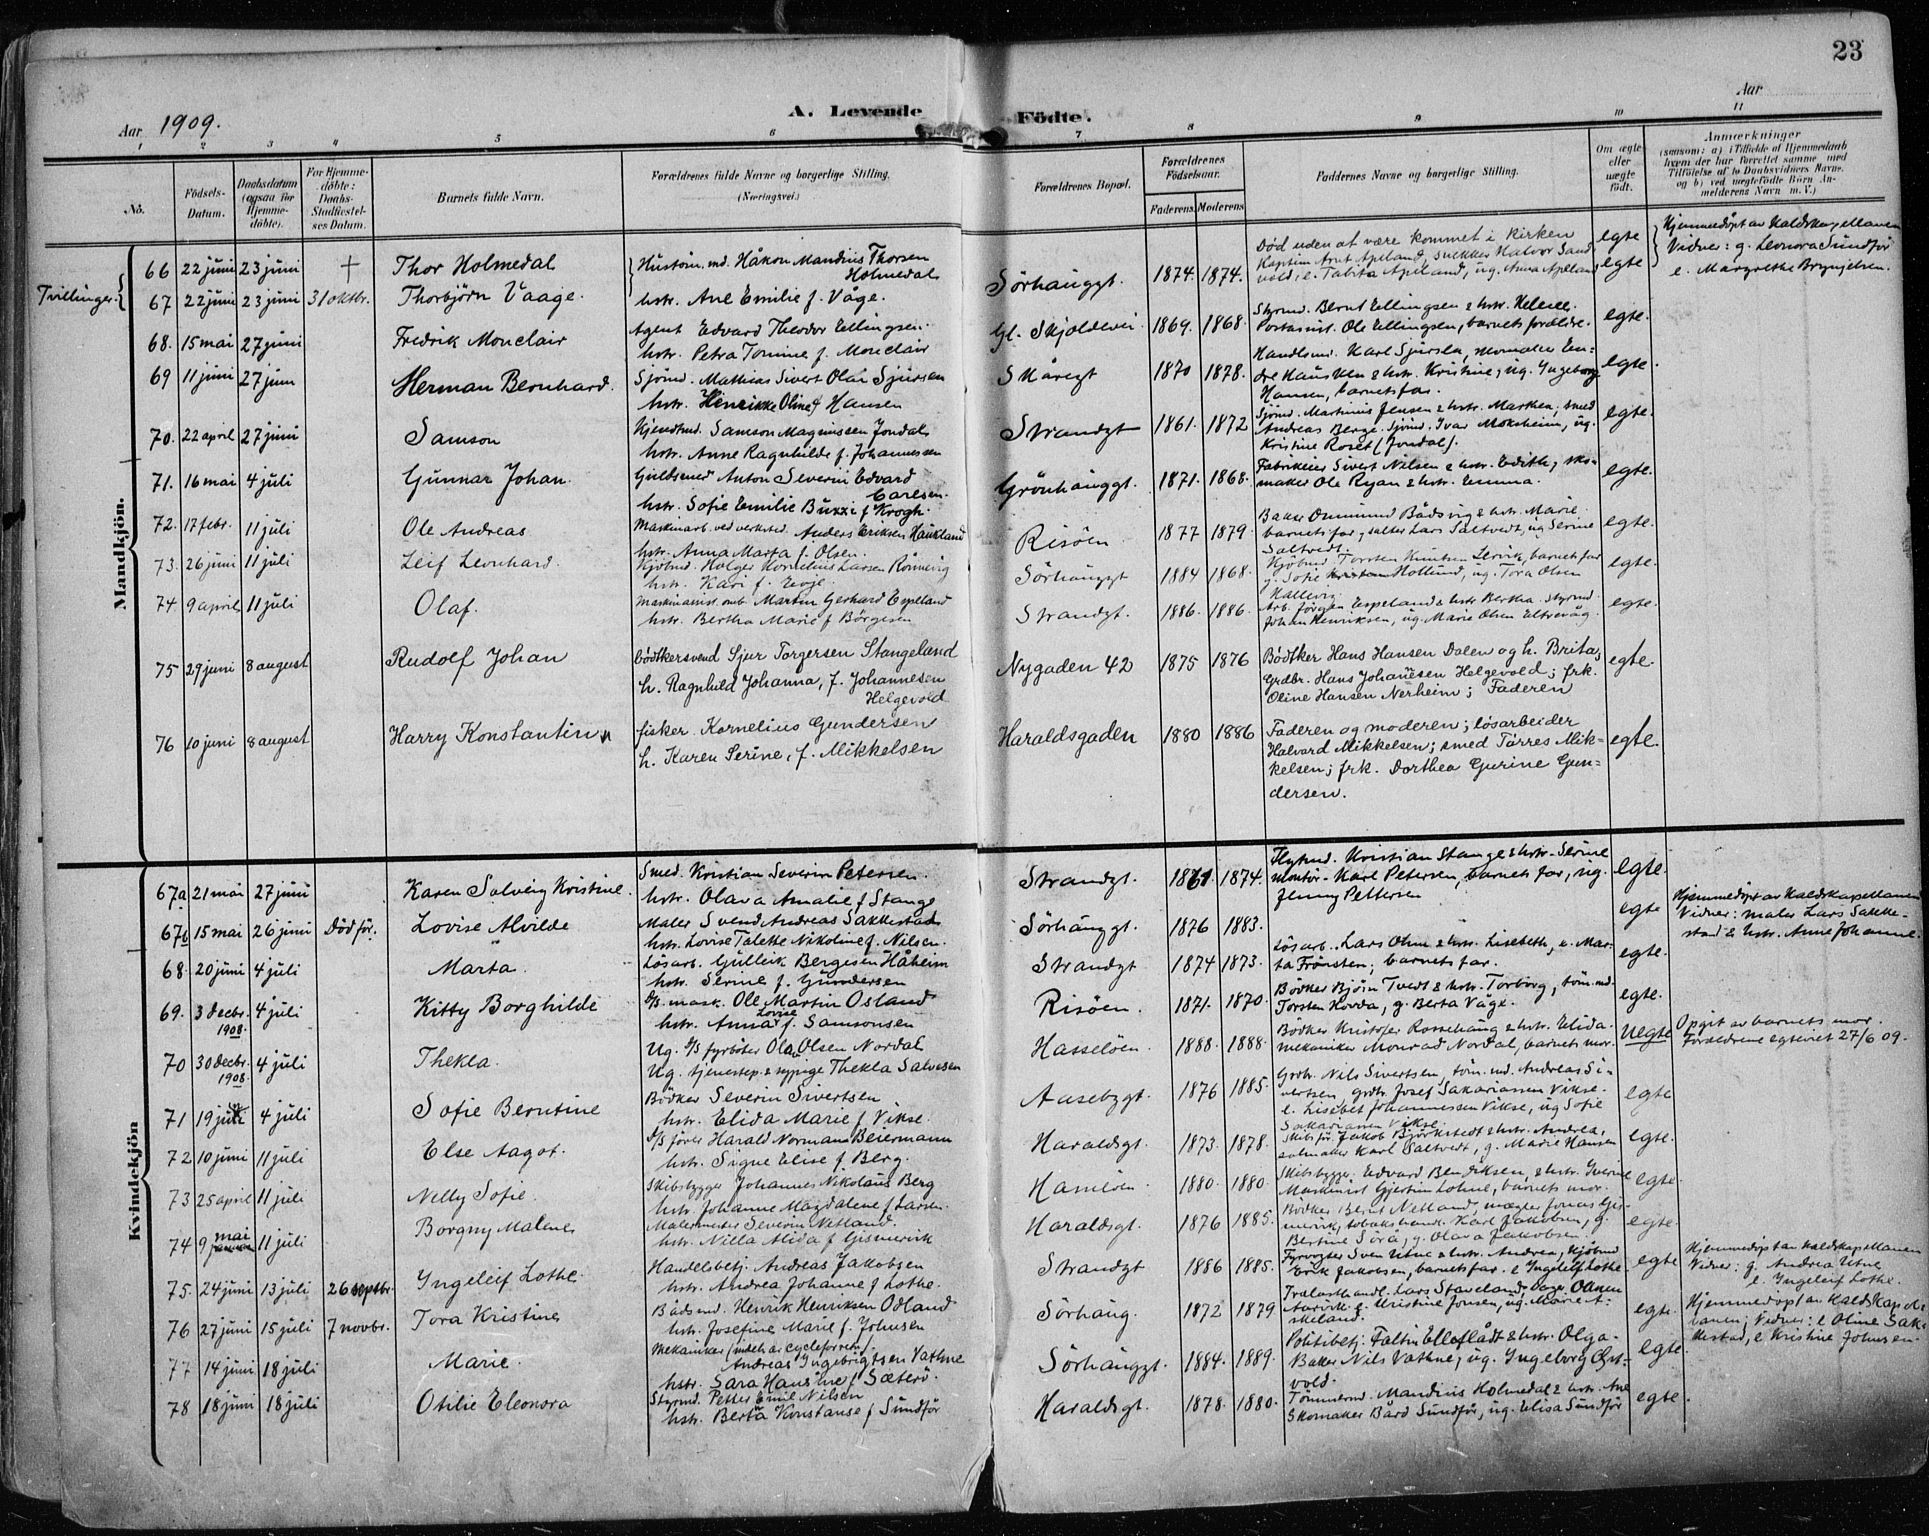 23
Aar 1909.
A. Levende Födte.
Aar
1 2 3 4 5 6 7 8 9 10 11
No.
Födsels-Datum.
Daabsdatum (ogsaa for Hjemme-döbte).
For Hjemme-döbte: Daabs-Stadfæstel-ses Datum.
Barnets fulde Navn.
Forældrenes fulde Navne og borgerlige Stilling. (Næringsvei.)
Forældrenes Bopæl.
Forældrenes Födselsaar.
Faderens Moderens
Faddernes Navne og borgerlige Stilling.
Om ægte eller uægte födt.
Anmærkninger
(saasom: a) i Tilfælde af Hjemmedaab hvem der har forrettet samme med Tilföielse af to Daabsvidners Navne. og b) ved uægtefödte Börn An-melderens Navn m. V.)
Mandkjön.
Tvillinger
66 22 juni 23 juni + Thor Holmedal Hustöm. md. Håkon Mandius Thorsen Holmedal
67 22 juni 23 juni 31 oktbr. Thorbjörn Vaage. hstr. Ane Emilie f. Våge. Sörhauggt. 1874. 1874.
Död uden at være kommet i kirken egte
Kaptein Arnt Apeland, snekker Halvor Sand-vold, e. Tabita Apeland, ug. Anna Apeland egte
Hjemmedöpt av kaldskapellanen
Vidner: g. Leonora Sundför
e. Margrethe Brynjelsen.
68. 15 mai 27 juni Fredrik Monclair Agent Edvard Theodor Ellingsen.
hstr. Petra Tomine f. Monclair Gl. Skjoldevei 1869. 1868.
Styrmd. Bernt Ellingsen & hstr. Helene.
Postassist. Ole Ellingsen, barnets forældre. egte.
69 11 juni 27 juni Herman Bernhard. Sjömd. Mathias Sivert Olai Sjursen
hstr. Henrikke Oline f Hansen Skåregt 1870 1878.
Handlsmd. Karl Sjursen, En-
dre Hausken & hstr. Kristine, ug. Ingeborg
Hansen, barnets far. egte.
70. 22 april 27 juni Samson Samson Magnussen Jondal
hstr. Anne Ragnhilde f. Johannessen Strandgt 1861. 1872
Sjömd. Martinus Jensen & hstr. Marken, smed
Andreas Berge. Sjömd. Ivar Moksheim, ug.
Kristine Roset (Jondal). egte.
71. 16 mai 4 juli Gunnar Johan. Guldsmed Anton Severin Edvard Carlsen.
hstr. Sofie Emilie Buzzi f Krogh. Grönhauggt. 1871. 1868.
Fabrikeier Sivert Nilsen & hstr. Edith, sko-
maker Ole Ryan & hstr. Emma. egte.
72. 17 febr. 11 juli Ole Andreas Maskinarb. ved verksted. Anders Eriksen Haukland
hstr. Anna Marta f. Olsen. Risöen 1877 1879
Baker Ommund Bådsvig & hstr. Marie.
barnets far, salter Lars Saltvedt, ug Serine
Saltvedt. egte.
73. 26 juni 11 juli Leif Leonhard. Kjöbmd. Holger Kornelius Larsen Rönnevig
hstr. Kari f. Evje. Sörhauggt 1884 1868.
Kjöbmd. Torsten Knutsen Lervik, barnets far
g. Sofie Hollund, ug. Tora Olsen
Kallevig. egte.
74. 9 april 11 juli Olaf. Maskinassist. omb. Martin Gerhard Espeland
hstr. Bertha Marie f Börgesen Strandgt. 1886. 1886.
Arb. Jörgen Espeland & hstr Bertha. Styrmd.
Johan Henriksen, ug. Marie Olsen Eltrevåg. egte.
75 29 juni 8 august Rudolf Johan bödkersvend Sjur Torgersen Stangeland
h. Ragnhild Johanna, f. Johannesen Helgevold Nygaden 42 1875 1876
Bödtker Hans Hansen Dalen og h. Brita,
Grdbr. Hans Johannesen Helgevold; frk.
Oline Hansen Nerheim; Faderen egte.
76 10 juni 8 august Harry Konstantin fisker. Kornelius Gundersen
h. Karen Serine, f. Mikkelsen Haraldsgaden 1880 1886
Faderen og moderen; lösarbeider
Halvard Mikkelsen; smed Tørres Mik-
kelsen; frk. Dorthea Gurine Gun-
dersen. egte.
Kvindekjön
67a 21 mai 27 juni Karen Solveig Kristine. Smed. Kristian Severin Petersen.
hstr. Olava Amalie f Stange Strandgt. 1861. 1874.
Kristian Stange & hstr. Serine
montör Karl Petersen, barnets far, ug.
Jenny Pettersen egte.
67b 15 mai 26 juni Död för. Lovise Alvilde Maler Svend Andreas Sakkestad
hstr. Lovise Talette Nikoline f. Nilsen. Sörhauggt. 1876 1883. egte
Hjemmedöpt av kaldskapellanen
Vidner: maler Lars Sakke-
stad & hstr. Anne Johanne.
68. 20 juni 4 juli Marta. Lösarb. Gulleik Bergesen Håheim
hstr. Serine f. Gundersen Strandgt 1874 1873.
Lösarb. Lars Ohm & hstr. Lisebeth, e. Mar-
ta Frönsten; barnets far. egte.
69. 3 decbr. 1908. 4 juli Kitty Borghilde D/S mask. Ole Martin Osland
hstr. Anna Lovise f. Samsonsen Risöen. 1871. 1870.
Bödker Björn Tvedt & hstr. Torborg, töm.md.
Torsten Hovda, g. Berta Våge. egte.
70 30 decbr. 1908 4 juli Thekla. Ug. D/S fyrböter Ola Olsen Nordal
Ug. tjenestep. & sypige Thekla Salvesen Hasselöen. 1888. 1888.
Bödker Kristofer Rossehaug & hstr. Elida.
mekaniker Monrad Nordal, barnets mor. Uegte
Opgit av barnets mor.
Forældrene egteviet 27/6 09.
71 19 4 juli Sofie Berntine Bödker Severin Sivertsen
hstr. Elida Marie f Vikse. Aasebygt. 1876 1885.
Grdbr. Nils Sivertsen, töm.md. Andreas Si-
vertsen, grdbr. Josef Sakariassen Vikse.
e. Lisebet Johannessen Vikse, ug Sofie
Sakariassen Vikse. egte
72 10 juni 11 juli Else Aagot. D/S förer Harald Normann Beiermann
hstr. Signe Elise f Berg. Haraldsgt. 1873. 1878.
Skibsför. Jakob Björkstedt & hstr. Andrea,
salmaker Karl Saltvedt, g. Marie Hansen egte.
73 25 april 11 juli Nelly Sofie. Skibsbygger Johannes Nikolaus Berg
hstr. Johanne Magdalene f Larsen. 1880. 1880.
Skibsbygger Edvard Bendiksen, & hstr. Gverine
Maskinist Gjertine Lohne, barnets mor. egte.
74 9 mai 11 juli Borgny Malene Malermester Severin Netland.
hstr. Nilla Alida f Gismervik Haraldsgt. 1876 1885.
Bödker Bernt Netland, mægler Jonas Gis-
mervik, tobakshandl. Karl Jakobsen, g.
Bertine Sörå, g. Olava Jakobsen. egte
75. 24 juni 13 juli 26 septbr. Ingeleif Lothe Handelsbetj. Andreas Jakobsen
hstr. Andrea Johanne f Lothe. Strandgt 1886 1885.
Fyrvogter Sven Utne & hstr. Andrea, Kjöbmd
Erik Jakobsen, barnets far. e Ingeleif Lothe egte
Hjemmedöpt av kaldskapellanen
Vidner: g. Andrea Utne
e. Ingeleif Lothe.
76 27 juni 15 juli 7 novbr. Tora Kristine Bådsmd. Henrik Henriksen Odland
hstr. Josefine Marie f. Johnsen Sörhaug. 1872 1879
Trælasthandl. Lars Staveland,
Aarvik e. Kristine Jonsen, ug. Marie A-
skeland. egte.
Hjemmedöpt av kaldskapel-
lanen; Vidner: e Oline Sak-
kestad, e Kristine Johnsen.
77 14 juni 18 juli Marie. Mekaniker (indeh. av cycleforretn.)
Andreas Ingebrigtsen Vathne
hstr. Sara Hansine f Sæterö. Sörhauggt. 1884. 1889.
Politibetj. Faltin Elleflådt & hstr. Olga.
Baker Nils Vathne, ug. Ingeborg Öst-
vold. egte.
78 18 juni 18 juli Otilie Eleonora Styrmd. Petter Emil Nilsen
hstr. Berta Konstanse f Sundför Haraldsgt. 1878. 1880.
Tömmermd. Mandius Holmedal & hstr. Ane
Skomaker Bård Sundför, ug. Elisa Sundför egte.